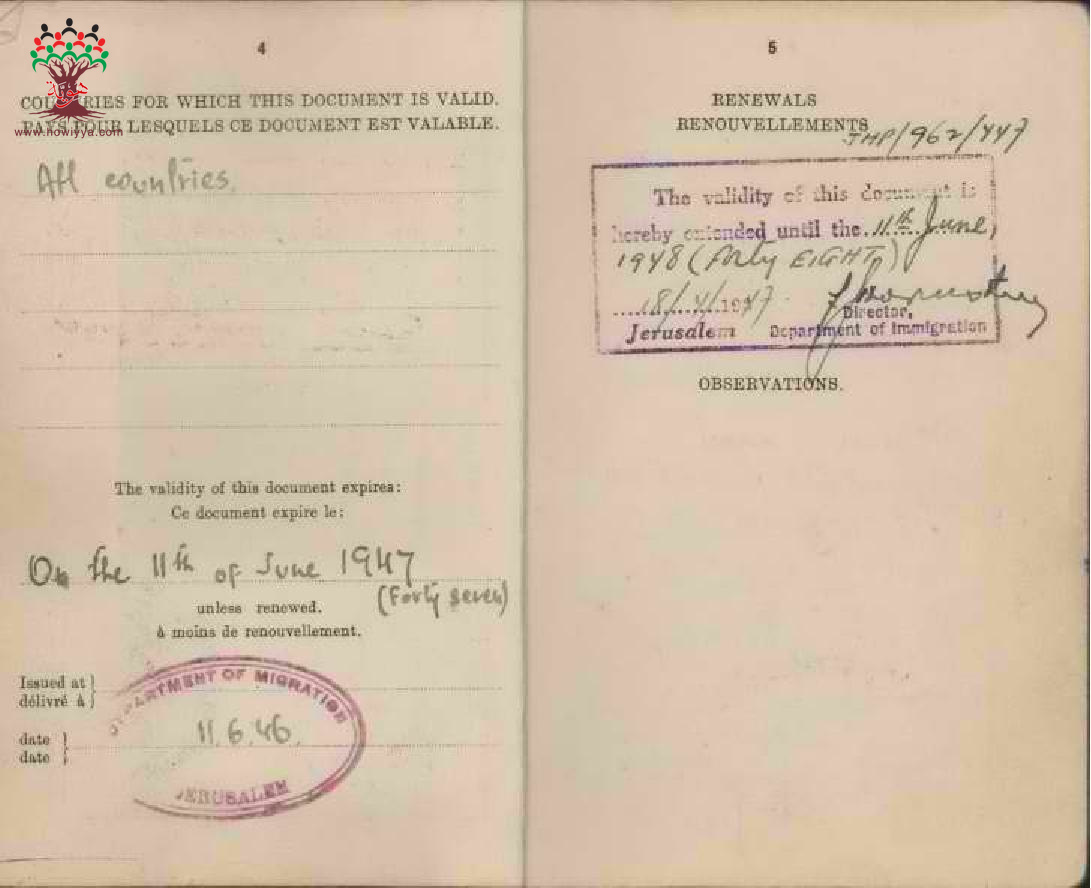 www.howiyya.com
4
COUNTRIES FOR WHICH THIS DOCUMENT IS VALID.
PAYS POUR LESQUELS CE DOCUMENT EST VALABLE.
All countries.
The validity of this document expires:
Ce document expire le:
On the 11th of June 1947
(Forty seven)
unless renewed.
à moins de renouvellement.
Issued at
délivré à
DEPARTMENT OF MIGRATION
date
date
11.6.46.
JERUSALEM
5
RENEWALS
RENOUVELLEMENTS
/962/447
The validity of this document is
hereby extended until the 11th June,
1948 (Forty EIGHT)
18/4/1947.
Director,
Jerusalem Department of Immigration
OBSERVATIONS.